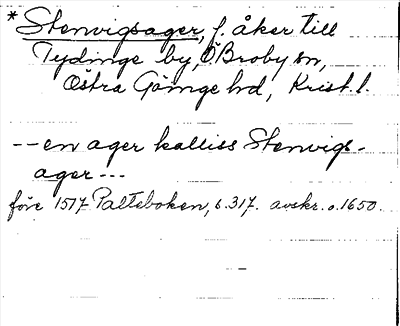 *Stenvigsager, f. åker till
Tydinge by, Ö Broby sn,
Östra Göinge hd, Krist. l.
-- en ager kalliss Stenvigs-
ager ---
före 1517 Palteboken, s. 317. avskr. o. 1650.